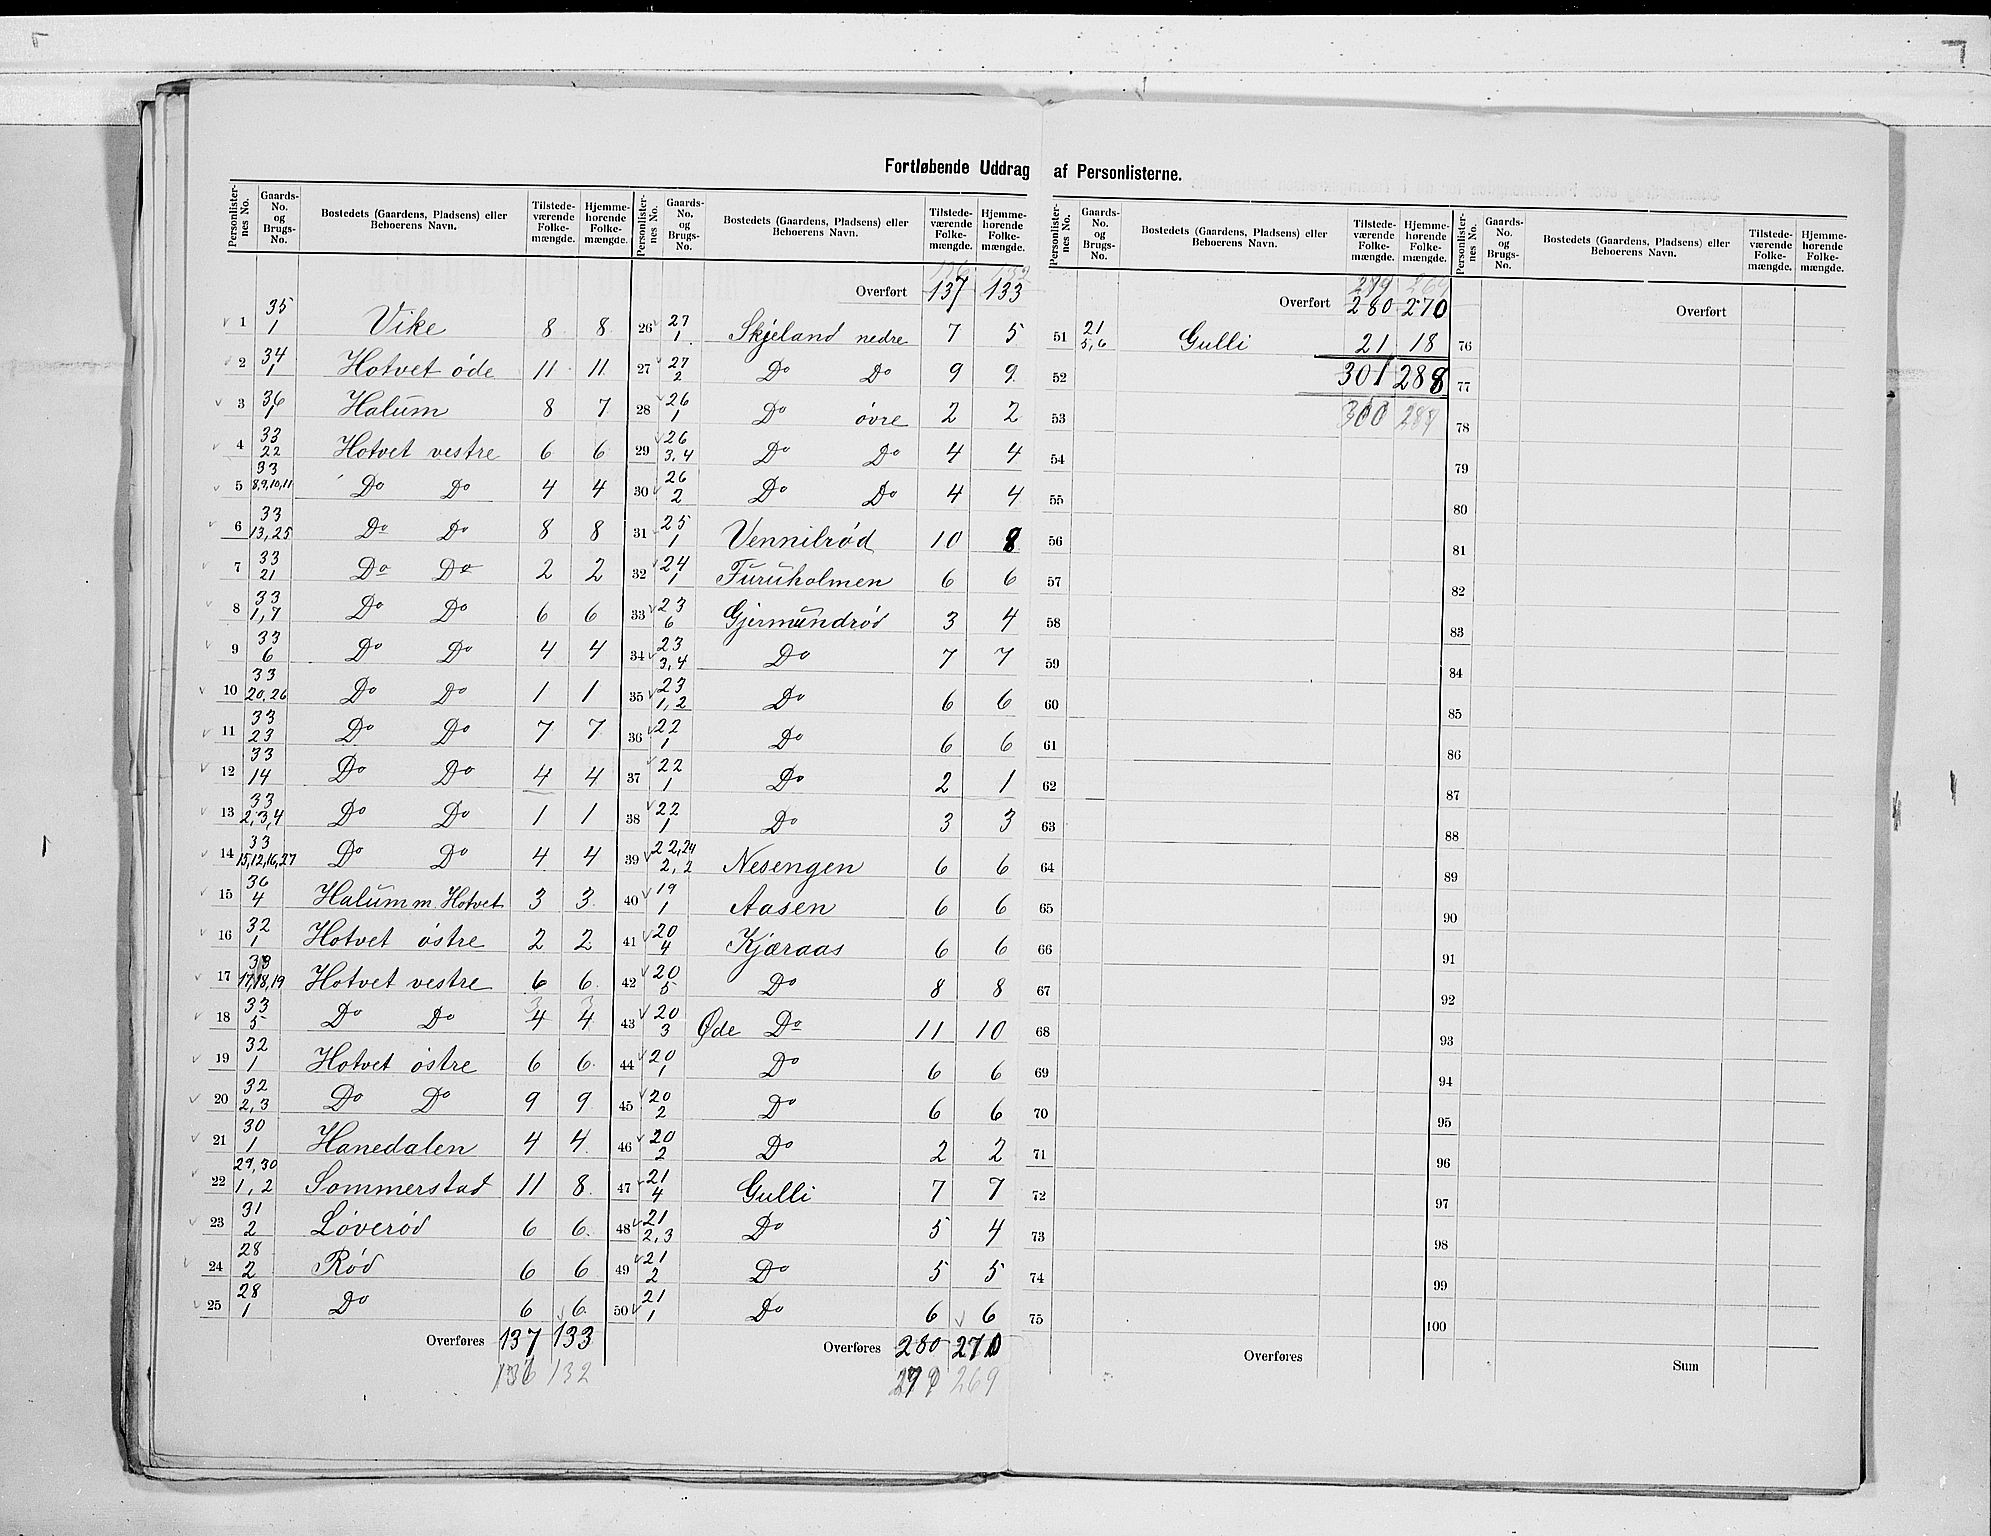 Fortløbende Uddrag af Personlisterne.
Personlister-nes No. | Gaards-No. og Brugs-No. | Bostedets (Gaardens, Pladsens) eller Beboerens Navn. | Tilstede-værende Folke-mængde. | Hjemme-hørende Folke-mængde.
1 | 35 / 1 | Vike | 8 | 8
2 | 34 / 1 | Hotvet øde | 11 | 11
3 | 36 / 1 | Halum | 8 | 7
4 | 33 / 22 | Hotvet vestre | 6 | 6
5 | 33 / 8,9,10,11 | Do Do | 4 | 4
6 | 33 / 13,25 | Do Do | 8 | 8
7 | 33 / 21 | Do Do | 2 | 2
8 | 33 / 1,7 | Do Do | 6 | 6
9 | 33 / 6 | Do Do | 4 | 4
10 | 33 / 20,26 | Do Do | 1 | 1
11 | 33 / 23 | Do Do | 7 | 7
12 | 33 / 14 | Do Do | 4 | 4
13 | 33 / 2,3,4 | Do Do | 1 | 1
14 | 33 / 15,12,16,27 | Do Do | 4 | 4
15 | 36 / 4 | Halum m. Hotvet | 3 | 3
16 | 32 / 1 | Hotvet østre | 2 | 2
17 | 33 / 17,18,19 | Hotvet vestre | 6 | 6
18 | 33 / 5 | Do Do | 3 4 | 3 4
19 | 32 / 1 | Hotvet østre | 6 | 6
20 | 32 / 2,3 | Do Do | 9 | 9
21 | 30 / 1 | Hanedalen | 4 | 4
22 | 29,30 / 1,2 | Sommerstad | 11 | 8
23 | 31 / 2 | Løverød | 6 | 6
24 | 28 / 2 | Rød | 6 | 6
25 | 28 / 1 | Do | 6 | 6
Overføres | 137 | 133
136 | 132
Personlister-nes No. | Gaards-No. og Brugs-No. | Bostedets (Gaardens, Pladsens) eller Beboerens Navn. | Tilstede-værende Folke-mængde. | Hjemme-hørende Folke-mængde.
136 | 132
Overført | 137 | 133
26 | 27 / 1 | Skjeland nedre | 7 | 5
27 | 27 / 2 | Do Do | 9 | 9
28 | 26 / 1 | Do øvre | 2 | 2
29 | 26 / 3.4 | Do Do | 4 | 4
30 | 26 / 2 | Do Do | 4 | 4
31 | 25 / 1 | Vennilrød | 10 | 8
32 | 24 / 1 | Furuholmen | 6 | 6
33 | 23 / 6 | Gjermundrød | 3 | 4
34 | 23 / 3,4 | Do | 7 | 7
35 | 23 / 1,2 | Do | 6 | 6
36 | 22 / 1 | Do | 6 | 6
37 | 22 / 1 | Do | 2 | 1
38 | 22 / 1 | Do | 3 | 3
39 | 22,24 / 2,2 | Nesengen | 6 | 6
40 | 19 / 1 | Aasen | 6 | 6
41 | 20 / 4 | Kjæraas | 6 | 6
42 | 20 / 5 | Do | 8 | 8
43 | 20 / 3 | Øde Do | 11 | 10
44 | 20 / 1 | Do | 6 | 6
45 | 20 / 2 | Do | 6 | 6
46 | 20 / 2 | Do | 2 | 2
47 | 21 / 4 | Gulli | 7 | 7
48 | 21 / 2,3 | Do | 5 | 4
49 | 21 / 2 | Do | 5 | 5
50 | 21 / 1 | Do | 6 | 6
Overføres | 280 | 270
279 | 269
Personlister-nes No. | Gaards-No. og Brugs-No. | Bostedets (Gaardens, Pladsens) eller Beboerens Navn. | Tilstede-værende Folke-mængde. | Hjemme-hørende Folke-mængde.
279 | 269
Overført | 280 | 270
51 | 21 / 5,6 | Gulli | 21 | 18
52 | 301 | 288
53 | 300 | 287
54
55
56
57
58
59
60
61
62
63
64
65
66
67
68
69
70
71
72
73
74
75
Overføres
Personlister-nes No. | Gaards-No. og Brugs-No. | Bostedets (Gaardens, Pladsens) eller Beboerens Navn. | Tilstede-værende Folke-mængde. | Hjemme-hørende Folke-mængde.
Overført
76
77
78
79
80
81
82
83
84
85
86
87
88
89
90
91
92
93
94
95
96
97
98
99
100
Sum